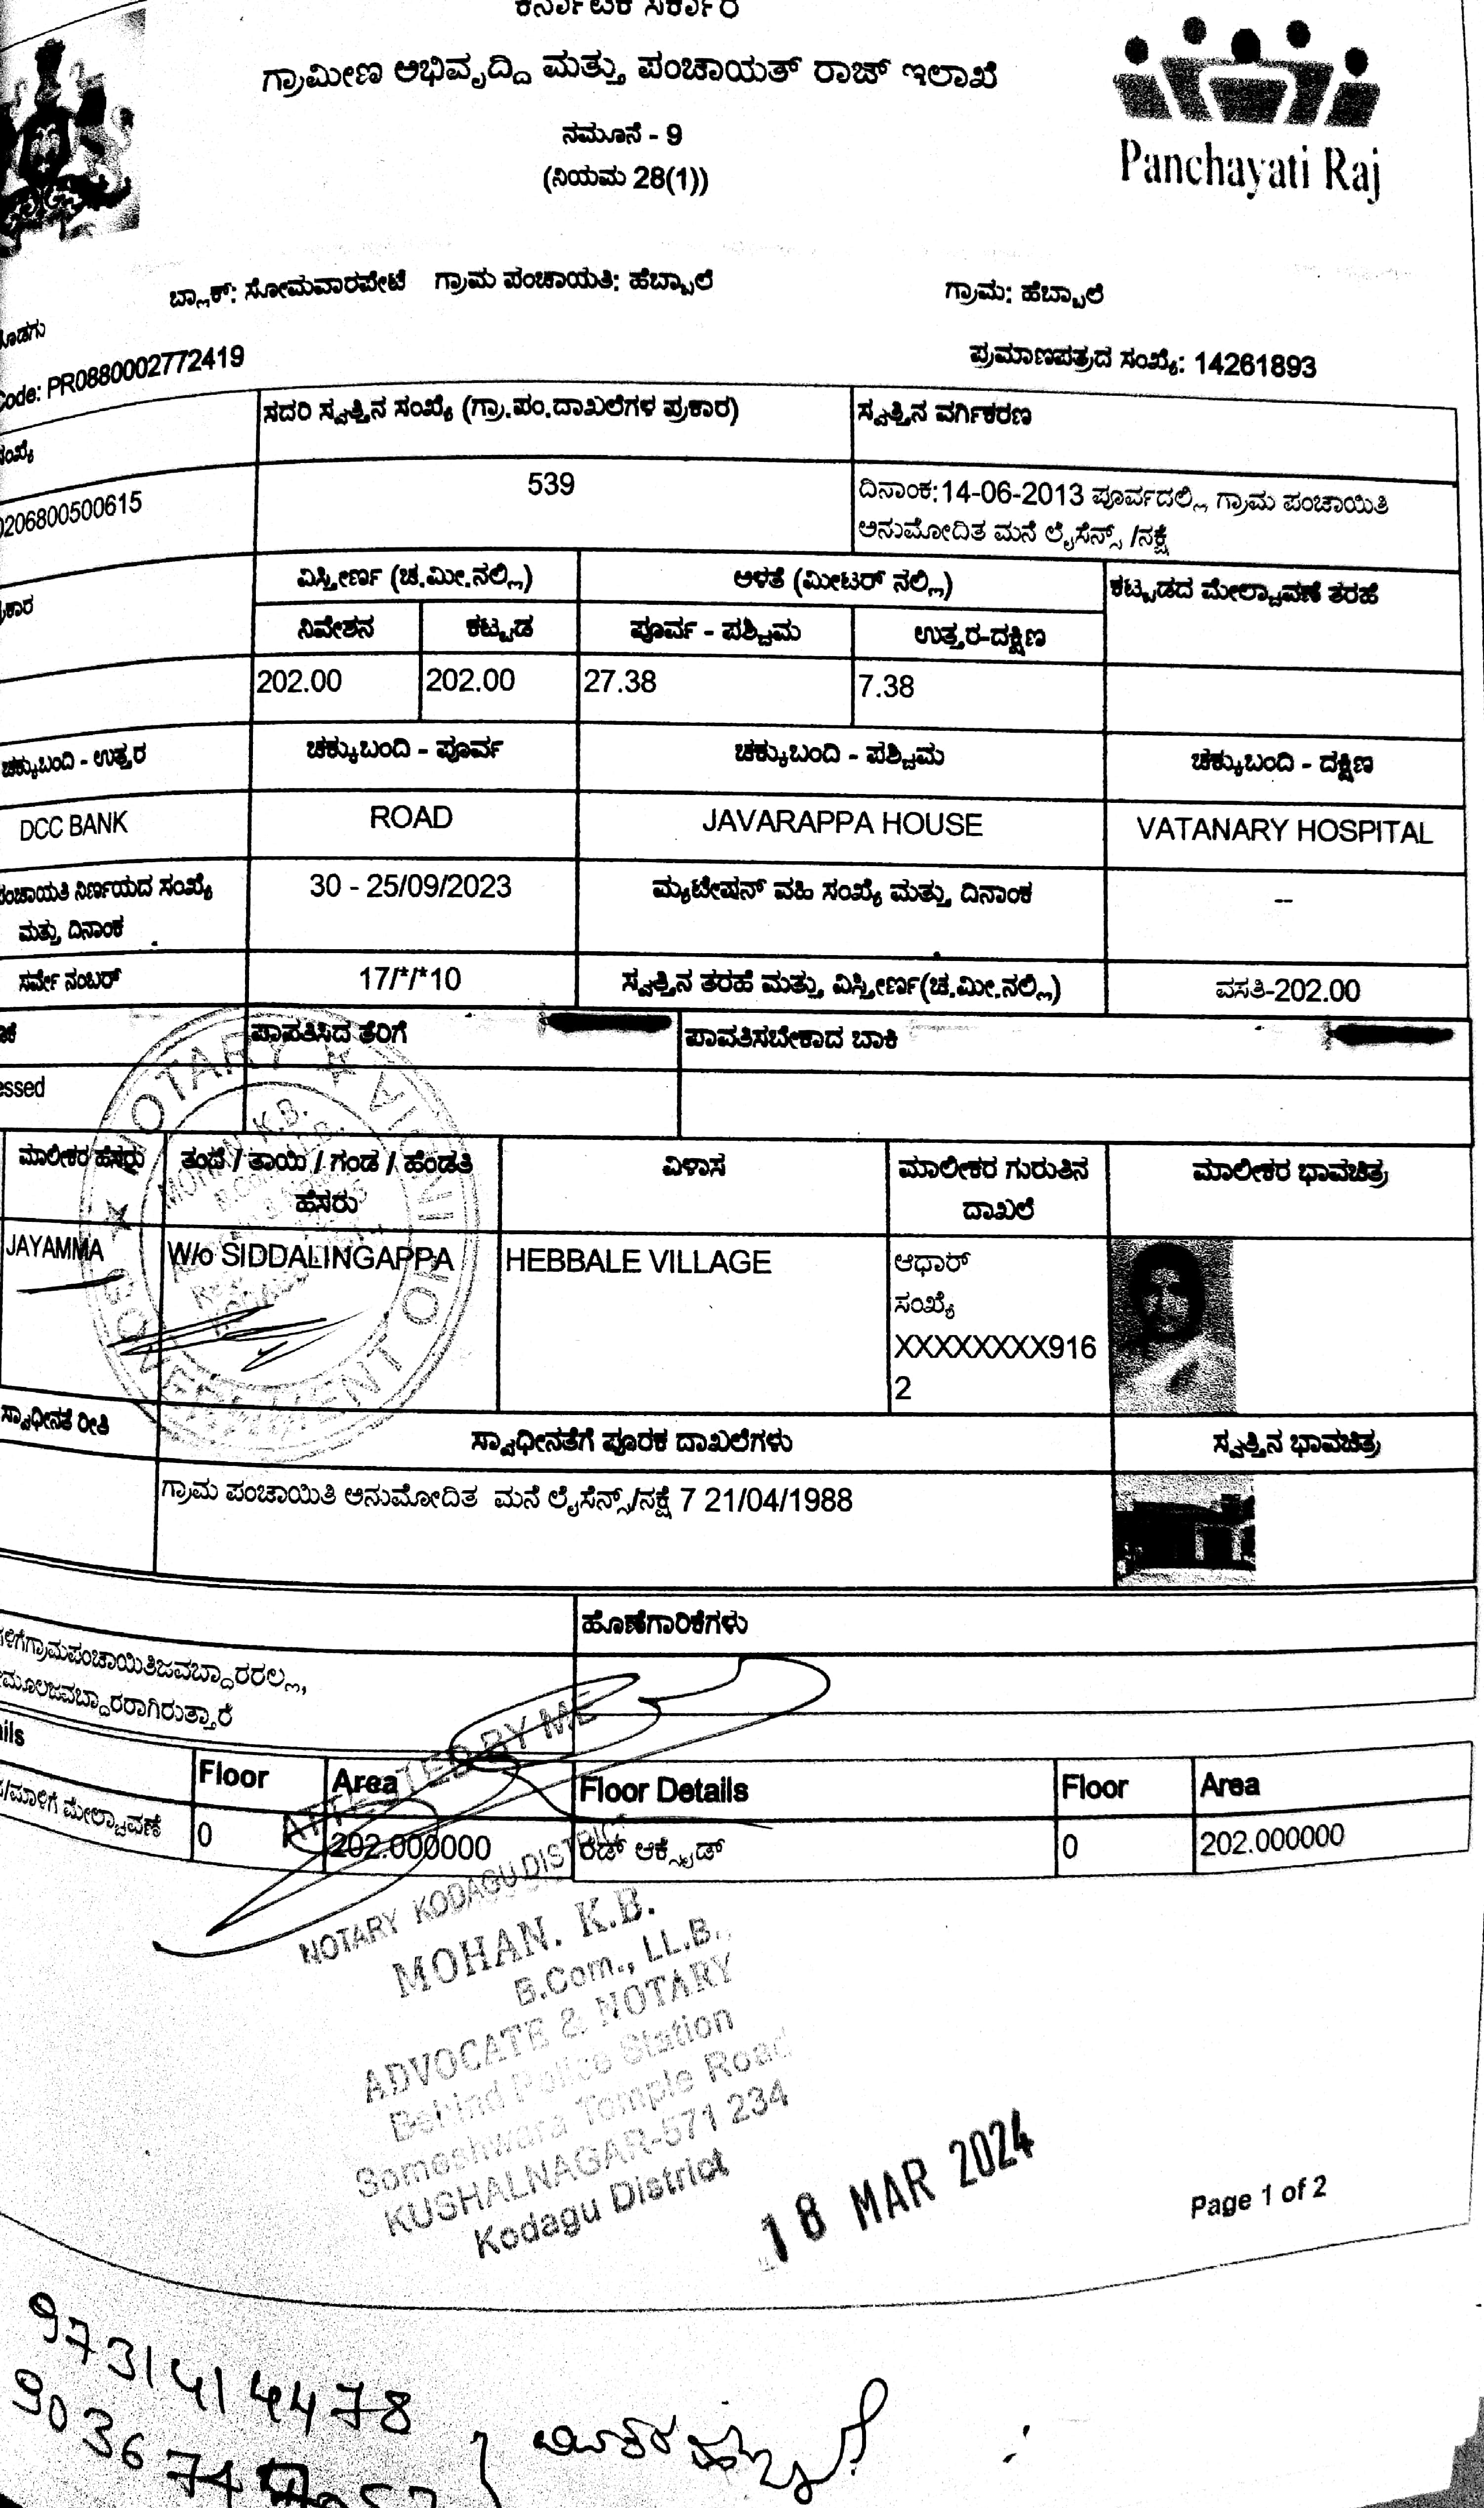 ಕರ್ನಾಟಕ ಸರ್ಕಾರ
ಗ್ರಾಮೀಣ ಅಭಿವೃದ್ದಿ ಮತ್ತು ಪಂಚಾಯತ್ ರಾಜ್ ಇಲಾಖೆ
ನಮೂನೆ - 9
(ನಿಯಮ 28(1))
Panchayati Raj
ಬ್ಲಾಕ್: ಸೋಮವಾರಪೇಟೆ ಗ್ರಾಮ ಪಂಚಾಯತಿ: ಹೆಬ್ಬಾಲೆ ಗ್ರಾಮ: ಹೆಬ್ಬಾಲೆ
Code: PR0880002772419
ಪ್ರಮಾಣಪತ್ರದ ಸಂಖ್ಯೆ: 14261893
ಸದರಿ ಸ್ವತ್ತಿನ ಸಂಖ್ಯೆ (ಗ್ರಾ.ಪಂ.ದಾಖಲೆಗಳ ಪ್ರಕಾರ) ಸ್ವತ್ತಿನ ವರ್ಗಿಕರಣ
0206800500615 539 ದಿನಾಂಕ:14-06-2013 ಪೂರ್ವದಲ್ಲಿ ಗ್ರಾಮ ಪಂಚಾಯಿತಿ
ಅನುಮೋದಿತ ಮನೆ ಲೈಸೆನ್ಸ್ /ನಕ್ಷೆ
ವಿಸ್ತೀರ್ಣ (ಚ.ಮೀ.ನಲ್ಲಿ) ಅಳತೆ (ಮೀಟರ್ ನಲ್ಲಿ) ಕಟ್ಟಡದ ಮೇಲ್ಚಾವಣಿ ತರಹೆ
ನಿವೇಶನ ಕಟ್ಟಡ ಪೂರ್ವ - ಪಶ್ಚಿಮ ಉತ್ತರ-ದಕ್ಷಿಣ
202.00 202.00 27.38 7.38
ಚಕ್ಕುಬಂದಿ - ಉತ್ತರ ಚಕ್ಕುಬಂದಿ - ಪೂರ್ವ ಚಕ್ಕುಬಂದಿ - ಪಶ್ಚಿಮ ಚಕ್ಕುಬಂದಿ - ದಕ್ಷಿಣ
DCC BANK ROAD JAVARAPPA HOUSE VATANARY HOSPITAL
ಪಂಚಾಯತಿ ನಿರ್ಣಯದ ಸಂಖ್ಯೆ 30 - 25/09/2023 ಮ್ಯುಟೇಷನ್ ವಹಿ ಸಂಖ್ಯೆ ಮತ್ತು ದಿನಾಂಕ --
ಮತ್ತು ದಿನಾಂಕ
ಸರ್ವೇ ನಂಬರ್ 17/*/*10 ಸ್ವತ್ತಿನ ತರಹೆ ಮತ್ತು ವಿಸ್ತೀರ್ಣ(ಚ.ಮೀ.ನಲ್ಲಿ) ವಸತಿ-202.00
ಪಾವತಿಸಿದ ತೆರಿಗೆ ಪಾವತಿಸಬೇಕಾದ ಬಾಕಿ
essed
ಮಾಲೀಕರ ಹೆಸರು ತಂದೆ / ತಾಯಿ / ಗಂಡ / ಹೆಂಡತಿ ವಿಳಾಸ ಮಾಲೀಕರ ಗುರುತಿನ ಮಾಲೀಕರ ಭಾವಚಿತ್ರ
ಹೆಸರು ದಾಖಲೆ
JAYAMMA W/o SIDDALINGAPPA HEBBALE VILLAGE ಆಧಾರ್
ಸಂಖ್ಯೆ
XXXXXXXX916
2
ಸ್ವಾಧೀನತೆ ರೀತಿ ಸ್ವಾಧೀನತೆಗೆ ಪೂರಕ ದಾಖಲೆಗಳು ಸ್ವತ್ತಿನ ಭಾವಚಿತ್ರ
ಗ್ರಾಮ ಪಂಚಾಯಿತಿ ಅನುಮೋದಿತ ಮನೆ ಲೈಸೆನ್ಸ್/ನಕ್ಷೆ 7 21/04/1988
ಹೊಣೆಗಾರಿಕೆಗಳು
ಳಿಗೆಗ್ರಾಮಪಂಚಾಯಿತಿಜವಬ್ದಾರರಲ್ಲ,
ಮೂಲಜವಬ್ದಾರರಾಗಿರುತ್ತಾರೆ
ils Floor Area Floor Details Floor Area
/ಮಾಳಿಗೆ ಮೇಲ್ಚಾವಣಿ 0 202.000000 ರೆಡ್ ಆಕ್ಸೈಡ್ 0 202.000000
ATTESTED BY ME
NOTARY KODAGU DISTRICT
MOHAN. K.B.
B.Com., LL.B.
ADVOCATE & NOTARY
Behind Police Station
Someshwara Temple Road
KUSHALNAGAR-571 234
Kodagu District
18 MAR 2024
Page 1 of 2
9731414478